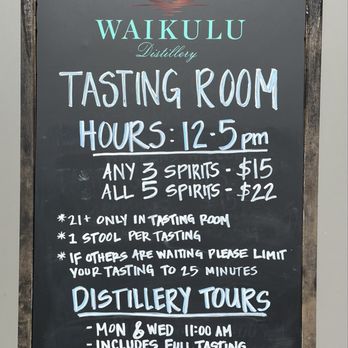 WAIKULU
Distillery
TASTING ROOM
HOURS: 12-5pm
ANY 3 SPIRITS - $15
ALL 5 SPIRITS - $22
*21+ ONLY IN TASTING ROOM
*1 STOOL PER TASTING
*IF OTHERS ARE WAITING PLEASE LIMIT
YOUR TASTING TO 25 MINUTES
DISTILLERY TOURS
- MON & WED 11:00 AM
- INCLUDES FULL TASTING